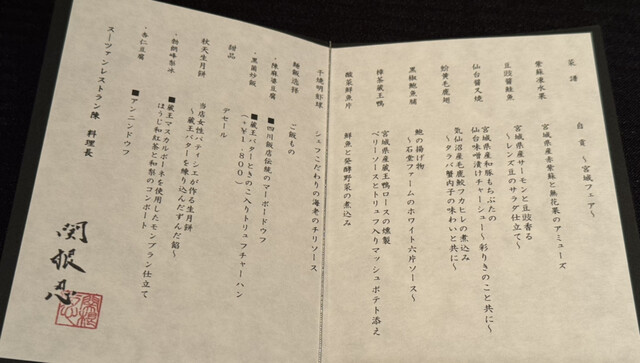 菜譜
白貢 ～宮城フェア～
紫蘇凍水果
宮城県産赤紫蘇と無花果のアミューズ
豆豉鮭魚
宮城県産サーモンと豆豉香る
～レンズ豆のサラダ仕立て～
仙台醤叉焼
宮城県産和豚もちぶたの
仙台味噌漬けチャーシュー～彩りきのこと共に～
蛤黄毛鹿翅
気仙沼産毛鹿鮫フカヒレの煮込み
～タラバ蟹内子の味わいと共に～
黒椒鮑魚脯
鮑の揚げ物
～石堂ファームのホワイト六片ソース～
樟茶蔵王鴨
宮城県産蔵王鴨ロースの燻製
ベリーソースとトリュフ入りマッシュポテト添え
酸菜鮮魚片
鮮魚と発酵野菜の煮込み
干焼明蝦球
シェフこだわりの海老のチリソース
麺飯選擇
ご飯もの
・陳麻婆豆腐
■四川飯店伝統のマーボードウフ
・黒菌炒飯
■蔵王バターときのこ入りトリュフチャーハン
(+￥1,800)
甜品
デセール
秋天生月餅
当店女性パティシエが作る生月餅
～蔵王バターを練り込んだずんだ餡～
・新朗峰梨冰
■蔵王マスカルポーネを使用したモンブラン仕立て
ほうじ和紅茶と和梨のコンポート
・杏仁豆腐
■アンニンドウフ
スーツァンレストラン陳 料理長
関根忍